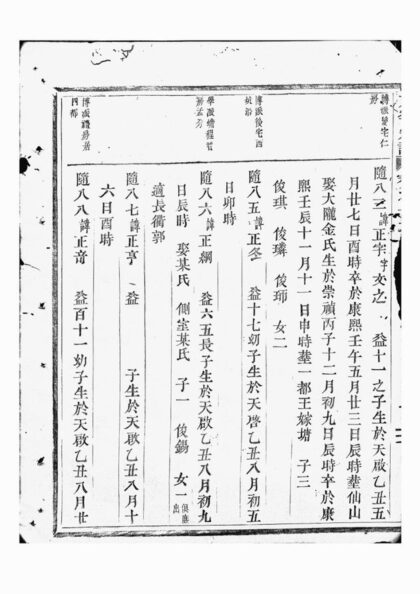 隨八三諱正字字文之 益十一之子生於天啟乙丑五
月廿七日酉時卒於康熙壬午五月廿三日辰時塟仙山
娶大隴金氏生於崇禎丙子十二月初九日辰時卒於康
熙壬辰十一月十一日申時塟一都王嫁塘 子三
俊琪 俊璘 俊珦 女二
隨八五諱正冬 益十七幼子生於天啓乙丑八月初五
日卯時
隨八六諱正綱 益六五長子生於天啟乙丑八月初九
日辰時 娶某氏 側室某氏 子一 俊錫 女一俱側出
適長衢郭
隨八七諱正亨 益 子生於天啟乙丑八月十
六日酉時
隨八八諱正音 益百十一幼子生於天啟乙丑八月廿